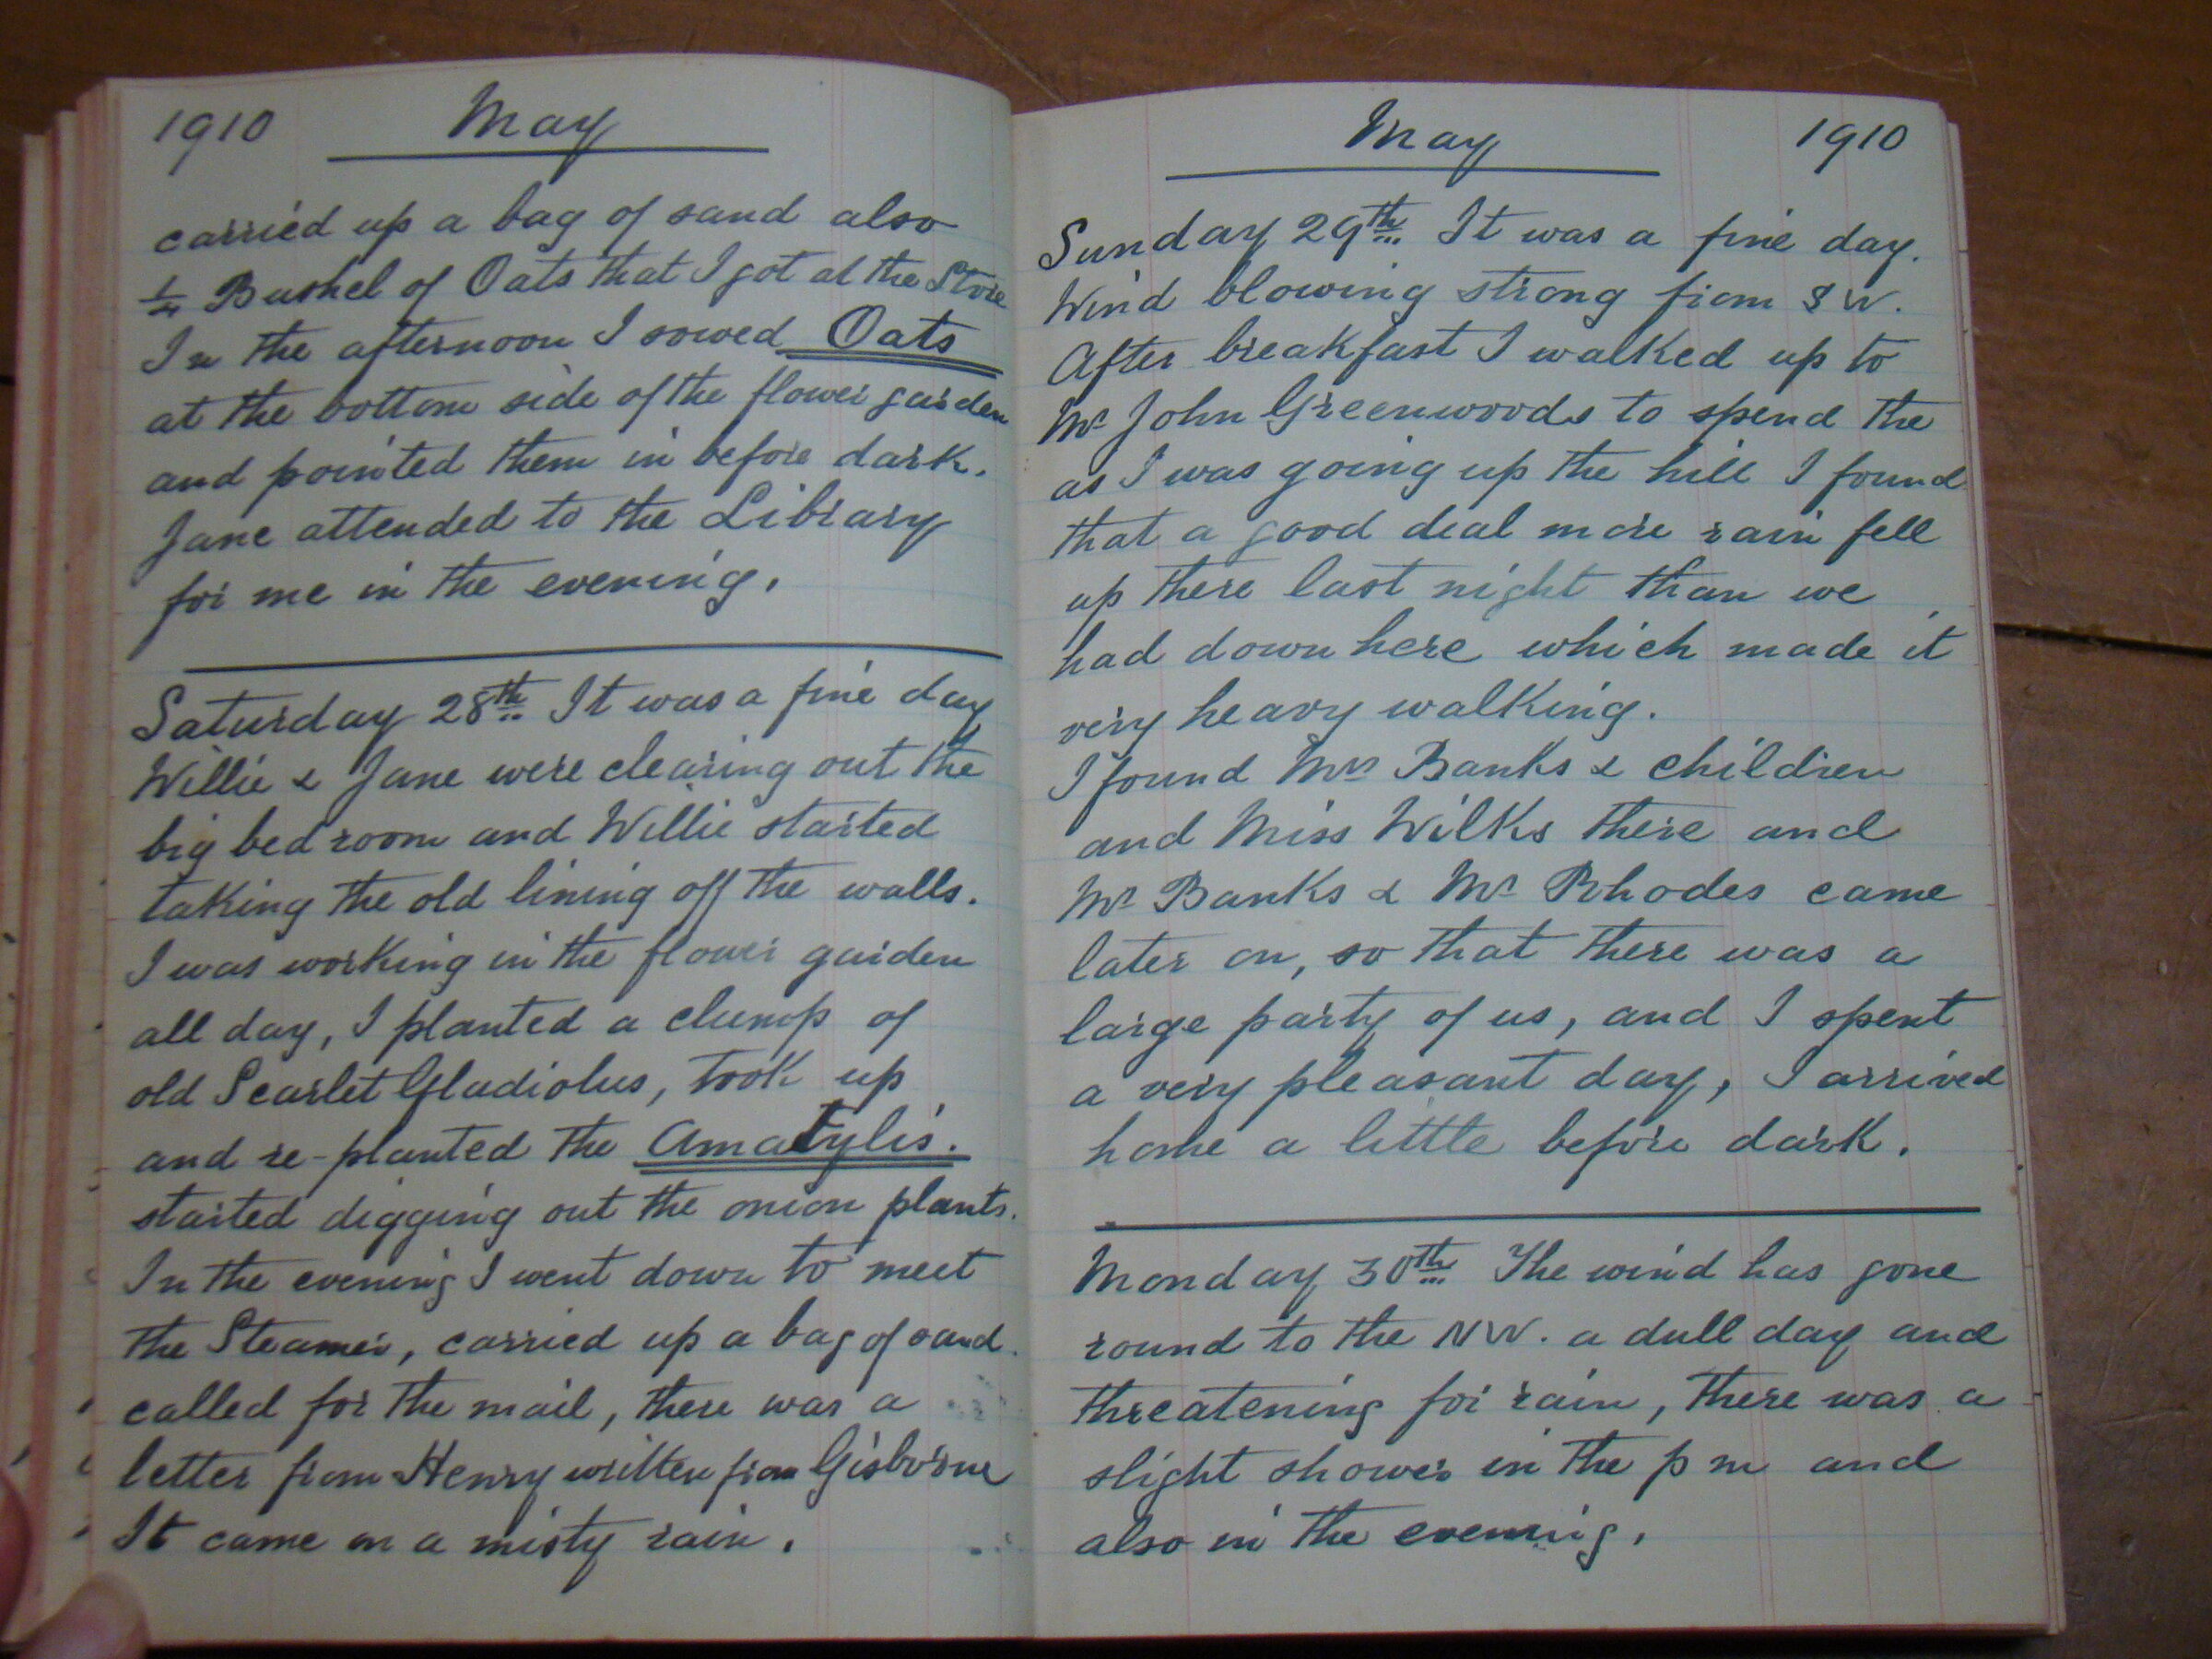 1910 May
carried up a bag of sand also
1/4 Bushel of Oats that I got at the Store
In the afternoon I sowed Oats
at the bottom side of the flower garden
and pointed them in before dark.
Jane attended to the Library
for me in the evening.
Saturday 28th It was a fine day
Willie & Jane were clearing out the
big bed room and Willie started
taking the old lining off the walls.
I was working in the flower garden
all day, I planted a clump of
old Scarlet Gladiolus, took up
and re-planted the Amarylis.
started digging out the onion plants.
In the evening I went down to meet
the Steamer, carried up a bag of sand.
called for the mail, there was a
letter from Henry written from Gisborne
It came on a misty rain.
May 1910
Sunday 29th It was a fine day.
Wind blowing strong from SW.
After breakfast I walked up to
Mr John Greenwoods to spend the
as I was going up the hill I found
that a good deal more rain fell
up there last night than we
had down here which made it
very heavy walking.
I found Mrs Banks & children
and Miss Wilks there and
Mr Banks & Mr Rhodes came
later on, so that there was a
large party of us, and I spent
a very pleasant day, I arrived
home a little before dark.
Monday 30th The wind has gone
round to the NW. a dull day and
threatening for rain, there was a
slight shower in the p m and
also in the evening.